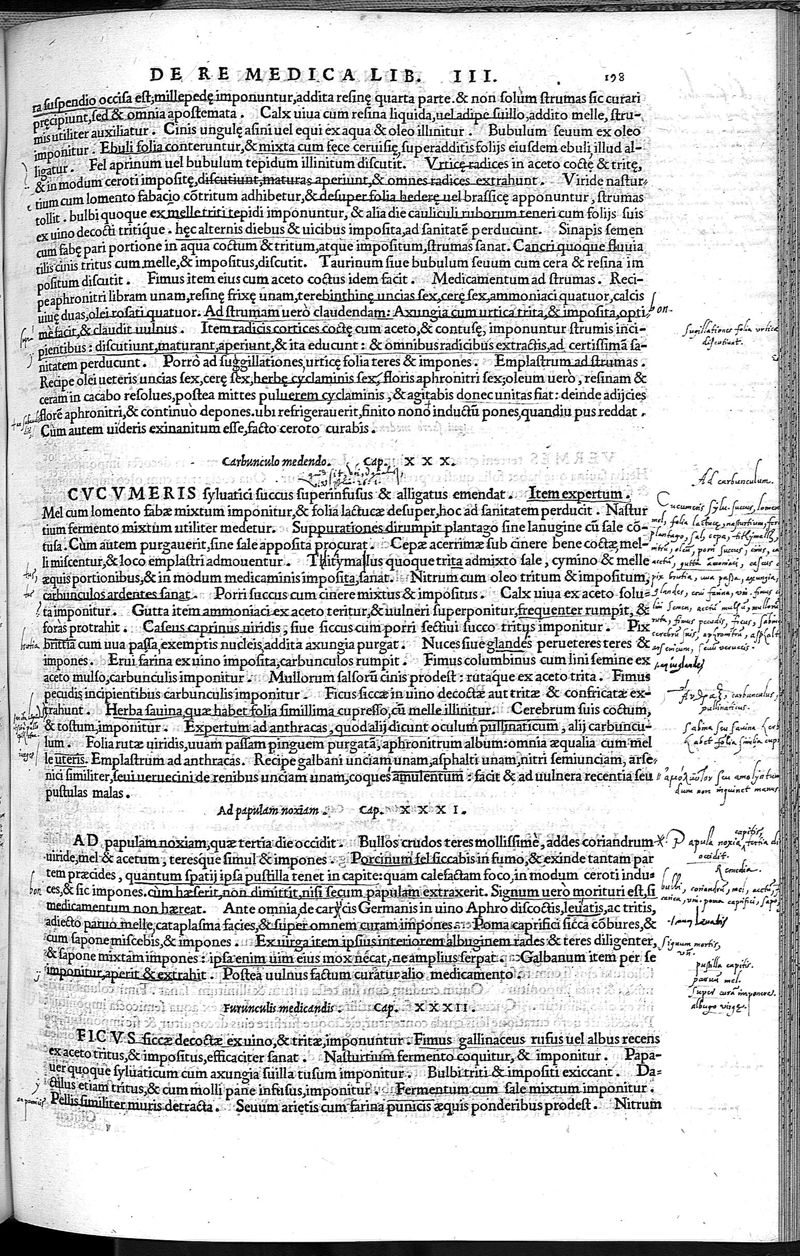 DE RE MEDICA LIB. III. 198
ra suspendio occisa est, millepedę imponuntur, addita resinę quarta parte. & non solùm strumas sic curari
pręcipiunt, sed & omnia apostemata. Calx uiua cum resina liquida, uel adipe suillo, addito melle, stru-
mis utiliter auxiliatur. Cinis ungulę asini uel equi ex aqua & oleo illinitur. Bubulum seuum ex oleo
imponitur. Ebuli folia conteruntur, & mixta cum fęce ceruisię, superadditis folijs eiusdem ebuli, illud al-
ligatur. Fel aprinum uel bubulum tepidum illinitum discutit. Vrticę radices in aceto coctę & tritę,
& in modum ceroti impositę, discutiunt, maturas aperiunt, & omnes radices extrahunt. Viride nastur-
tium cum lomento fabacio cōtritum adhibetur, & desuper folia hederę uel brassicę apponuntur, strumas
tollit. bulbi quoque ex melle triti tepidi imponuntur, & alia die cauliculi ruborum teneri cum folijs suis
ex uino decocti tritique. hęc alternis diebus & uicibus imposita, ad sanitatē perducunt. Sinapis semen
cum fabę pari portione in aqua coctum & tritum, atque impositum, strumas sanat. Cancri quoque fluuia
tilis cinis tritus cum melle, & impositus, discutit. Taurinum siue bubulum seuum cum cera & resina im
positum discutit. Fimus item eius cum aceto coctus idem facit. Medicamentum ad strumas. Reci-
pe aphronitri libram unam, resinę frixę unam, terebinthinę uncias sex, cerę sex, ammoniaci quatuor, calcis
uiuę duas, olei rosati quatuor. Ad strumam uerò claudendam: Axungia cum urtica trita, & imposita, opti
mè facit, & claudit uulnus. Item radicis cortices coctę cum aceto, & contusę, imponuntur strumis inci-
pientibus: discutiunt, maturant, aperiunt, & ita educunt: & omnibus radicibus extractis, ad certissimā sa-
nitatem perducunt. Porrò ad suggillationes, urticę folia teres & impones. Emplastrum ad strumas.
Recipe olei ueteris uncias sex, cerę sex, herbę cyclaminis sex, floris aphronitri sex, oleum uerò, resinam &
ceram in cacabo resolues, postea mittes puluerem cyclaminis, & agitabis donec unitas fiat: deinde adijcies
florē aphronitri, & continuò depones. ubi refrigerauerit, finito nono inductū pones, quandiu pus reddat.
Cùm autem uideris exinanitum esse, facto ceroto curabis.
Carbunculo medendo. Cap. XXX.
CVCVMERIS syluatici succus superinfusus & alligatus emendat. Item expertum.
Mel cum lomento fabæ mixtum imponitur, & folia lactucæ desuper, hoc ad sanitatem perducit. Nastur
tium fermento mixtum utiliter medetur. Suppurationes dirumpit plantago sine lanugine cū sale cō-
tusa. Cùm autem purgauerit, sine sale apposita procurat. Cepæ acerrimæ sub cinere bene coctæ, mel-
li miscentur, & loco emplastri admouentur. Tithymallus quoque trita admixto sale, cymino & melle
æquis portionibus, & in modum medicaminis imposita, sanat. Nitrum cum oleo tritum & impositum,
carbunculos ardentes sanat. Porri succus cum cinere mixtus & impositus. Calx uiua ex aceto solu-
ta imponitur. Gutta item ammoniaci ex aceto teritur, & uulneri superponitur, frequenter rumpit, &
foras protrahit. Caseus caprinus uiridis, siue siccus cum porri sectiui succo tritus imponitur. Pix
brittia cum uua passa, exemptis nucleis, addita axungia purgat. Nuces siue glandes perueteres teres &
impones. Erui farina ex uino imposita, carbunculos rumpit. Fimus columbinus cum lini semine ex
aceto mulso, carbunculis imponitur. Mullorum salsorū cinis prodest: rutaque ex aceto trita. Fimus
pecudis incipientibus carbunculis imponitur. Ficus siccæ in uino decoctæ aut tritæ & confricatæ ex-
trahunt. Herba sauina, quæ habet folia simillima cupresso, cū melle illinitur. Cerebrum suis coctum,
& tostum, imponitur. Expertum ad anthracas, quod alij dicunt oculum pullinaticum, alij carbuncu-
lum. Folia rutæ uiridis, uuam passam pinguem purgatā, aphronitrum album: omnia æqualia cum mel
le uteris. Emplastrum ad anthracas. Recipe galbani unciam unam, asphalti unam, nitri semiunciam, arse-
nici similiter, seui ueruecini de renibus unciam unam, coques amulentum: facit & ad uulnera recentia seu
pustulas malas.
Ad papulam noxiam. Cap. XXXI.
AD papulam noxiam, quæ tertia die occidit. Bullos crudos teres mollissimè, addes coriandrum
uiride, mel & acetum, teresque simul & impones. Porcinum fel siccabis in fumo, & exinde tantam par
tem præcides, quantum spatij ipsa pustilla tenet in capite: quam calefactam foco, in modum ceroti indu-
ces, & sic impones. cùm hæserit, non dimittit, nisi secum papulam extraxerit. Signum uerò morituri est, si
medicamentum non hæreat. Ante omnia, de carycis Germanis in uino Aphro discoctis, leuatis, ac tritis,
adiecto paruo melle, cataplasma facies, & super omnem curam impones. Poma caprifici sicca cōbures, &
cum sapone miscebis, & impones. Ex uirga item ipsius interiorem albuginem rades & teres diligenter,
& sapone mixtam impones: ipsa enim uim eius mox necat, ne amplius serpat. Galbanum item per se
imponitur, aperit & extrahit. Postea uulnus factum curatur alio medicamento.
Furunculis medicandis. Cap. XXXII.
FICVS siccæ decoctæ ex uino, & tritæ, imponuntur. Fimus gallinaceus rufus uel albus recens
ex aceto tritus, & impositus, efficaciter sanat. Nasturtium fermento coquitur, & imponitur. Papa-
uer quoque syluaticum cum axungia suilla tusum imponitur. Bulbi triti & impositi exiccant. Da-
ctilus etiam tritus, & cum molli pane infusus, imponitur. Fermentum cum sale mixtum imponitur.
Pellis similiter muris detracta. Seuum arietis cum farina punicis æquis ponderibus prodest. Nitrum
bon.
sugillationes folia urticæ
discutiunt.
Ad carbunculum.
Cucumeris sylu. succus, lomen
mel, folia lactucæ, nasturtium, fer
plantago, sal, cepa, tithymall
carbunculus,
pullinaticus.
Sabina seu sauina herb
habet folia similia cupr
Papula noxia tertia di
capitis,
occidit.
Remedia.
Signum mortis,
pusilla capitis.
parum mel.
super curā imponere.
albugo virgę.